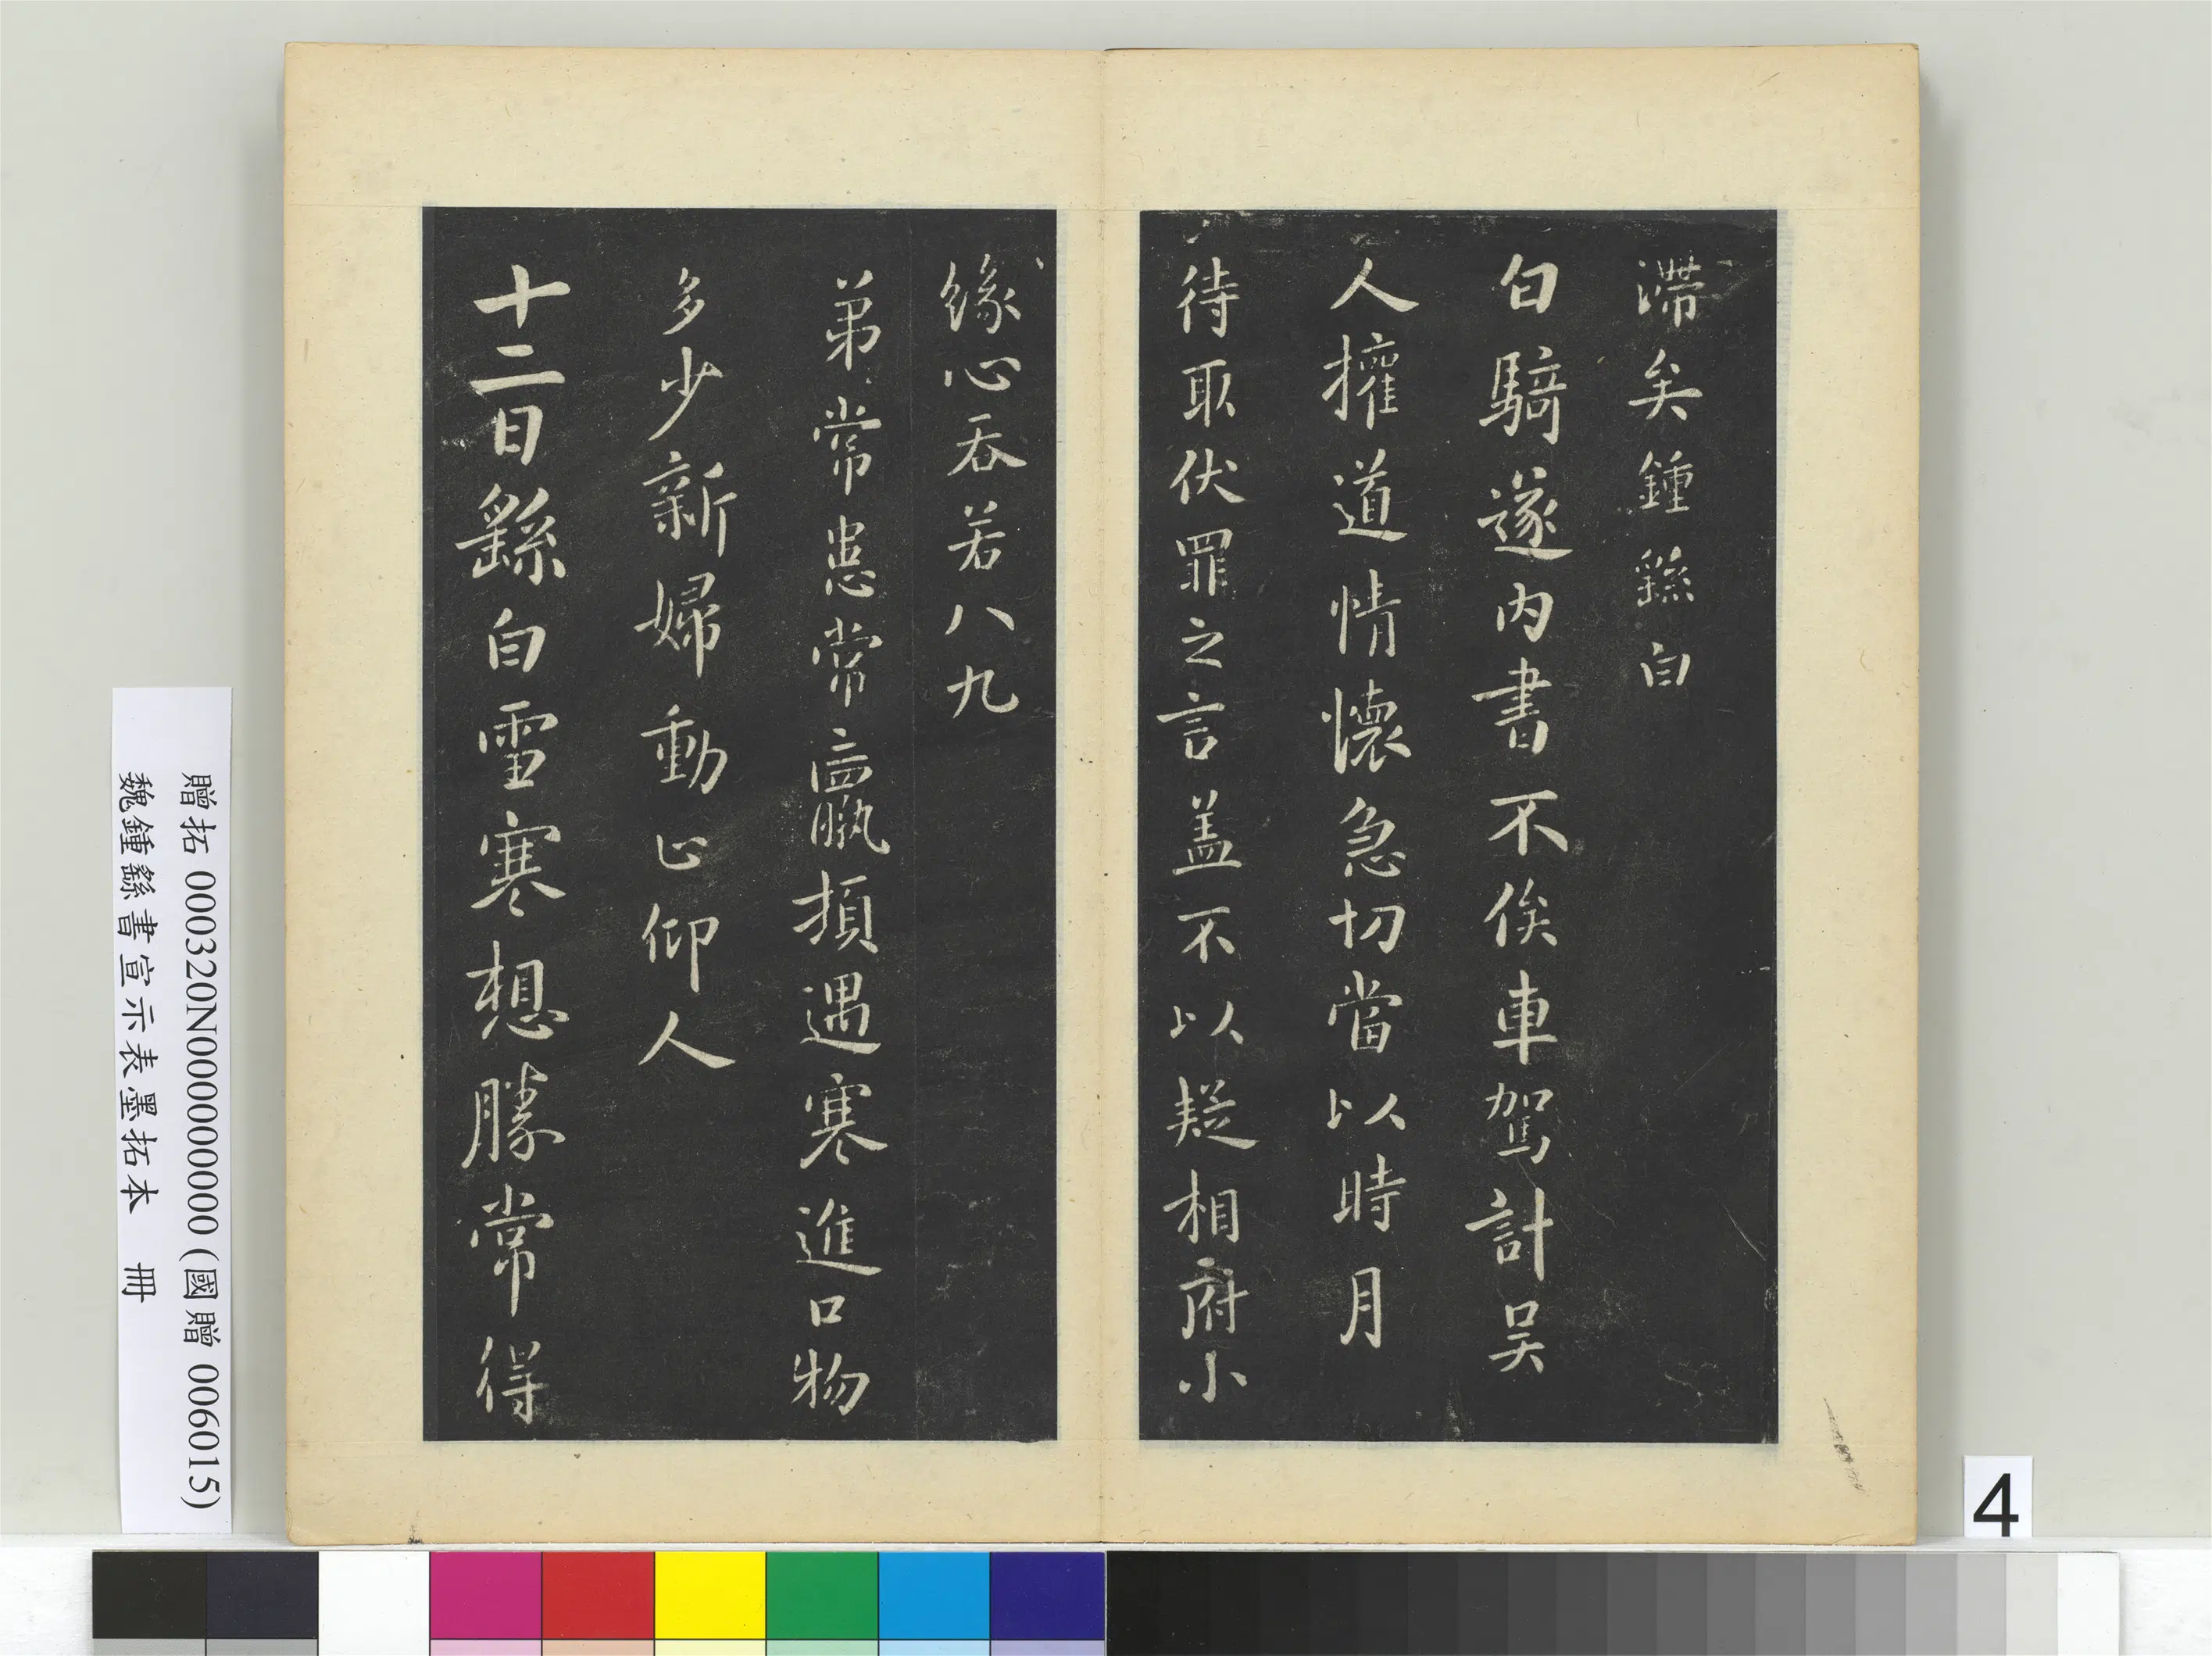 滯矣鍾繇白
白騎遂內書不俟車駕計吳
人擁道情懷急切當以時月
待取伏罪之言盖不以疑相府小
緣心吞若八九
弟常患常羸損遇寒進口物
多少新婦動止仰人
十二日繇白雪寒想勝常得
贈拓 000320N000000000 (國贈 006015)
魏鍾繇書宣示表墨拓本 冊
4